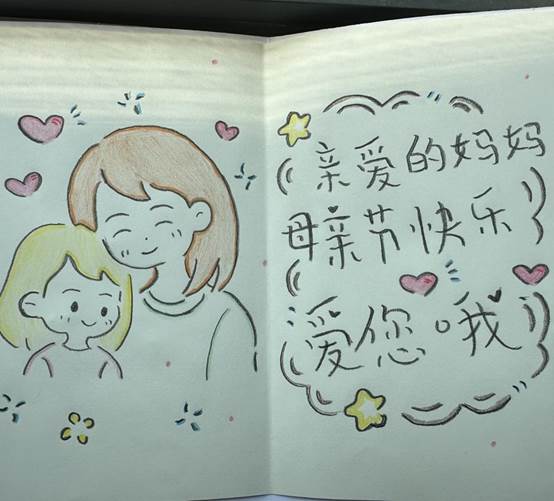 亲爱的妈妈
母亲节快乐
爱您哦